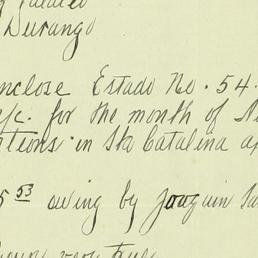 Durango
nclose Estado No. 54.
/c. for the month of
ations in Sta Catalina a
5 53 owing by Joaquin Sa
very tru